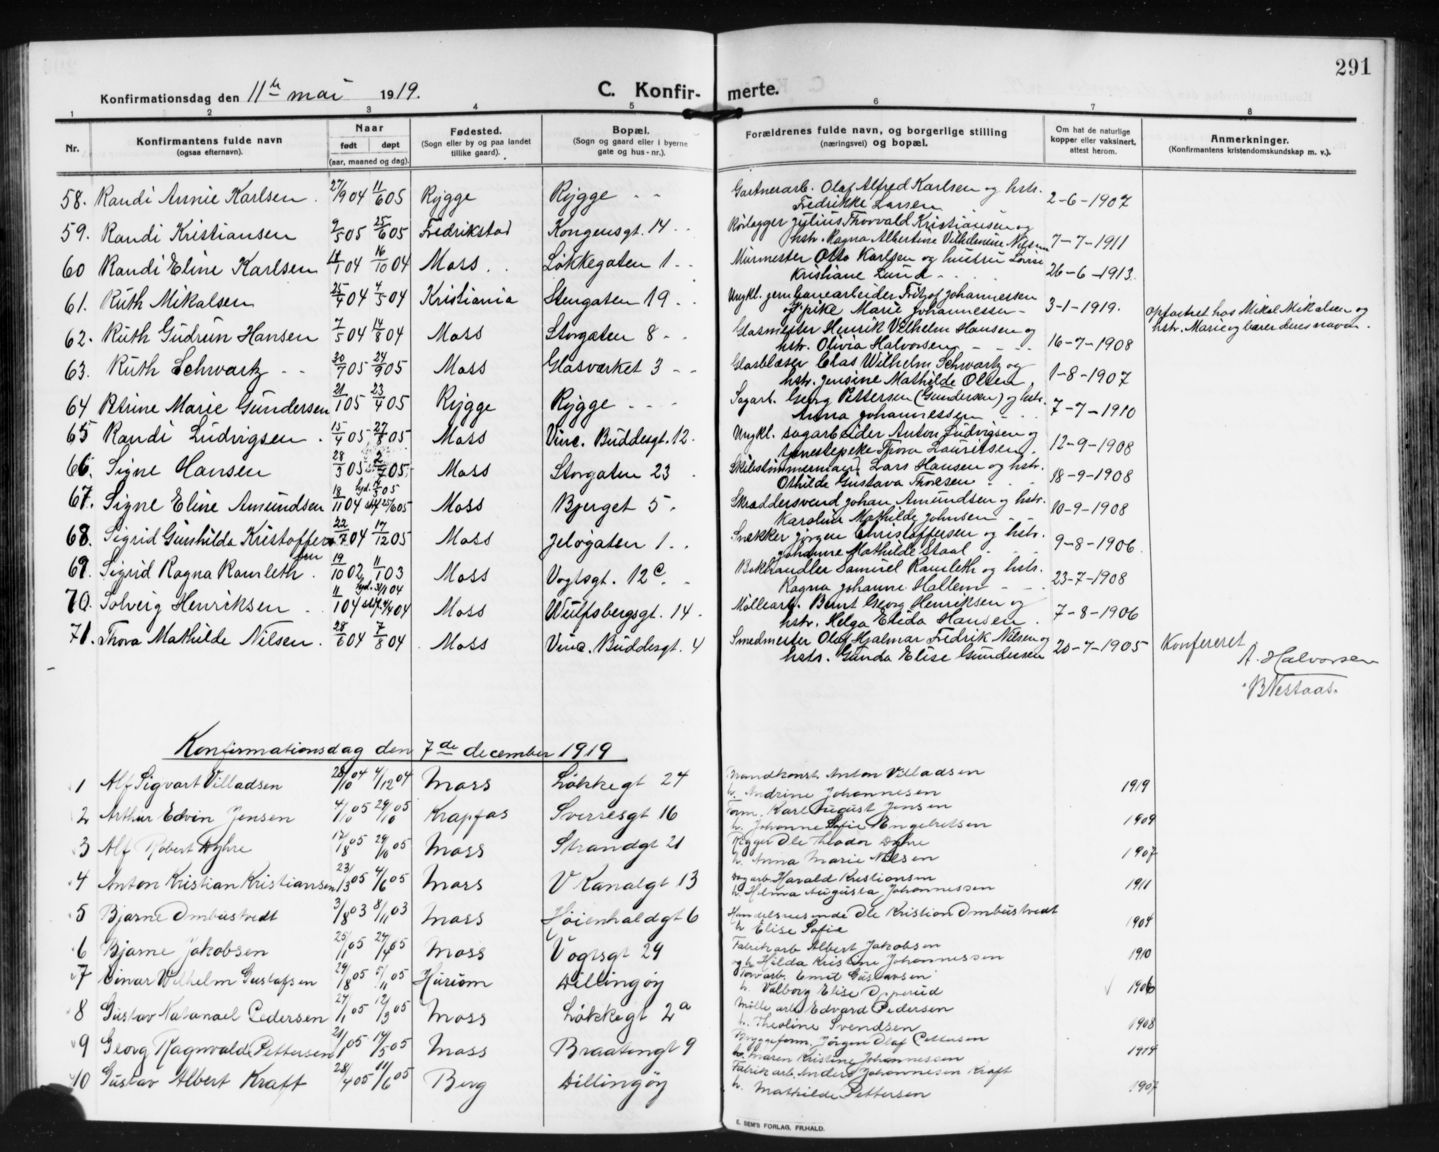 291
Konfirmationsdag den 11te mai 1919.
C. Konfirmerte.
1 2 3 4 5 6 7 8
Nr. Konfirmantens fulde navn (ogsaa efternavn). Naar født døpt (aar, maaned og dag). Fødested. (Sogn eller by og paa landet tillike gaard). Bopæl. (Sogn og gaard eller i byerne gate og hus-nr.). Forældrenes fulde navn, og borgerlige stilling (næringsvei) og bopæl. Om hat de naturlige kopper eller vaksinert, attest herom. Anmerkninger. (Konfirmantens kristendomskundskap m. v.).
58. Randi Annie Karlsen. 27/9 04 11/6 05 Rygge Rygge - - Gartnerarb. Olaf Alfred Karlsen og hstr. 2-6-1907
Fredrikke Larsen
59. Randi Kristiansen 9/5 05 25/6 05 Fredrikstad Kongensgt. 14 - - Rørlegger Julius Thorvald Kristiansen og 7-7-1911
hstr. Ragna Albertine Vilhelmine Nilsen
60 Randi Eline Karlsen 04 16/10 04 Moss. Løkkegaten 1 - - Murmester Otto Karlsen og hustru 26-6-1913.
Kristiane Lund
61. Ruth Mikalsen 04 04 Kristiania Stengaten 19 - - Ungkl. jernbanearbeider Johannessen 3-1-1919. Opfostret hos Mikal Mikalsen og
og pike Marie Johannessen - hstr. Marie og bærer deres navn.
62. Ruth Gudrun Hansen 7/5 04 14/8 04 Moss Storgaten 8 - - Glasmester Henrik Vilhelm Hansen og 16-7-1908
hstr. Olivia Halvorsen - - -
63. Ruth Schwartz - - 05 24/9 05 Moss Glasverket 3 - - Glasblæser Clas Wilhelm Schwartz og 1-8-1907
hstr. Jensine Mathilde Olsen
64 Petrine Marie Gundersen 21/1 05 23/4 05 Rygge Rygge - - - Sagarb. Georg Pettersen (Gundersen) og hstr. 7-7-1910
Anna Johannessen - -
65 Randi Ludvigsen 15/4 05 27/8 05 Moss Vinc. Buddesgt. 12. Ungkl. sagarbeider Anton Ludvigsen og 12-9-1908
tjenestepike Thora Lauritsen.
66. Signe Hansen 28/3 05 2/7 05 Moss Storgaten 23 Skibstømmermand Lars Hansen og hstr. 18-9-1908
Othilde Gustava Thoresen
67. Signe Eline Amundsen 18/11 04 05 Moss Bjerget 5 Skræddersvend Johan Amundsen og hstr. 10-9-1908
Karoline Mathilde Johnsen - -
68. Sigrid Gunhilda Kristoffersen 22/7 04 17/12 05 Moss Jeløgaten 1 - - Snekker Jørgen Christoffersen og hstr. 9-8-1906
Johanne Mathilde Staal
69. Sigrid Ragna Ramleth 19/10 02 11/1 03 Moss Vogtsgt. 12c. Bokhandler Samuel Ramleth og hstr. 23-7-1908
Ragna Johanne Hallem
70. Solveig Henriksen 11/1 04 04 Moss Wulfsbergsgt. 14. Møllearb. Bernt Georg Henriksen og 7-8-1906
hstr. Helga Elida Hansen.
71. Thora Mathilde Nilsen 28/6 04 7/8 04 Moss Vinc. Buddesgt. 4 Smedmester Olaf Hjalmar Fredrik Nilsen og 20-7-1905 Konfereret
hstr. Gunda Elise Gundersen A. Halvorsen
B Nestaas.
Konfirmationsdag den 7de december 1919
1 Alf Sigvart Villadsen 28/10 04 4/12 04 Moss Løkkegt 24 Anton Villadsen 1919
h. Andrine Johannesen
2 Arthur Edvin Jensen 4/10 05 29/10 05 Krapfos Sverresgt 16 Form. Karl August Jensen 1909
h. Johanne Sofie Engebretsen
3 Alf Robert Dyhre 17/8 05 29/10 05 Moss Strandgt 21 Rigger Ole Teodor Dyhre 1907
h. Anna Marie Nilsen
4 Anton Kristian Kristiansen 23/3 05 4/6 05 Moss V Kanalgt 13 Sagarb. Harald Kristiansen 1911
h. Helma Augusta Johannessen
5 Bjarne Ombustvedt 3/8 03 8/11 03 Moss Høienhaldgt 6 Handelsreisende Ole Kristian Ombustvedt 1904
h Elise Sofie
6 Bjarne Jakobsen 25/1 05 24/4 05 Moss Vogtsgt 29 Fabrikarb Albert Jakobsen 1910
og h. Hilda Kristine Johannessen
7 Einar Vilhelm Gustafsen 29/8 05 5/11 05 Hurum Dillingøy Emil Gustavsen 1906
h. Valborg Elise Opperud
8 Gustav Natanael Pedersen 27/1 05 12/3 05 Moss Løkkegt 2a Mølle arb Edvard Pedersen 1908
h. Theoline Svendsen
9 Georg Ragnvald Pettersen 05 14/5 05 Moss Braatengt 9 Bryggeform. Jörgen Olaf Pettersen 1914
h. Maren Kristine Johannessen
10 Gustav Albert Kraft 28/4 05 11/6 05 Berg Dillingøy Fabrikarb. Anders Johannesen Kraft 1907
h. Mathilde Pettersen
E. SEM'S FORLAG, FR.HALD.